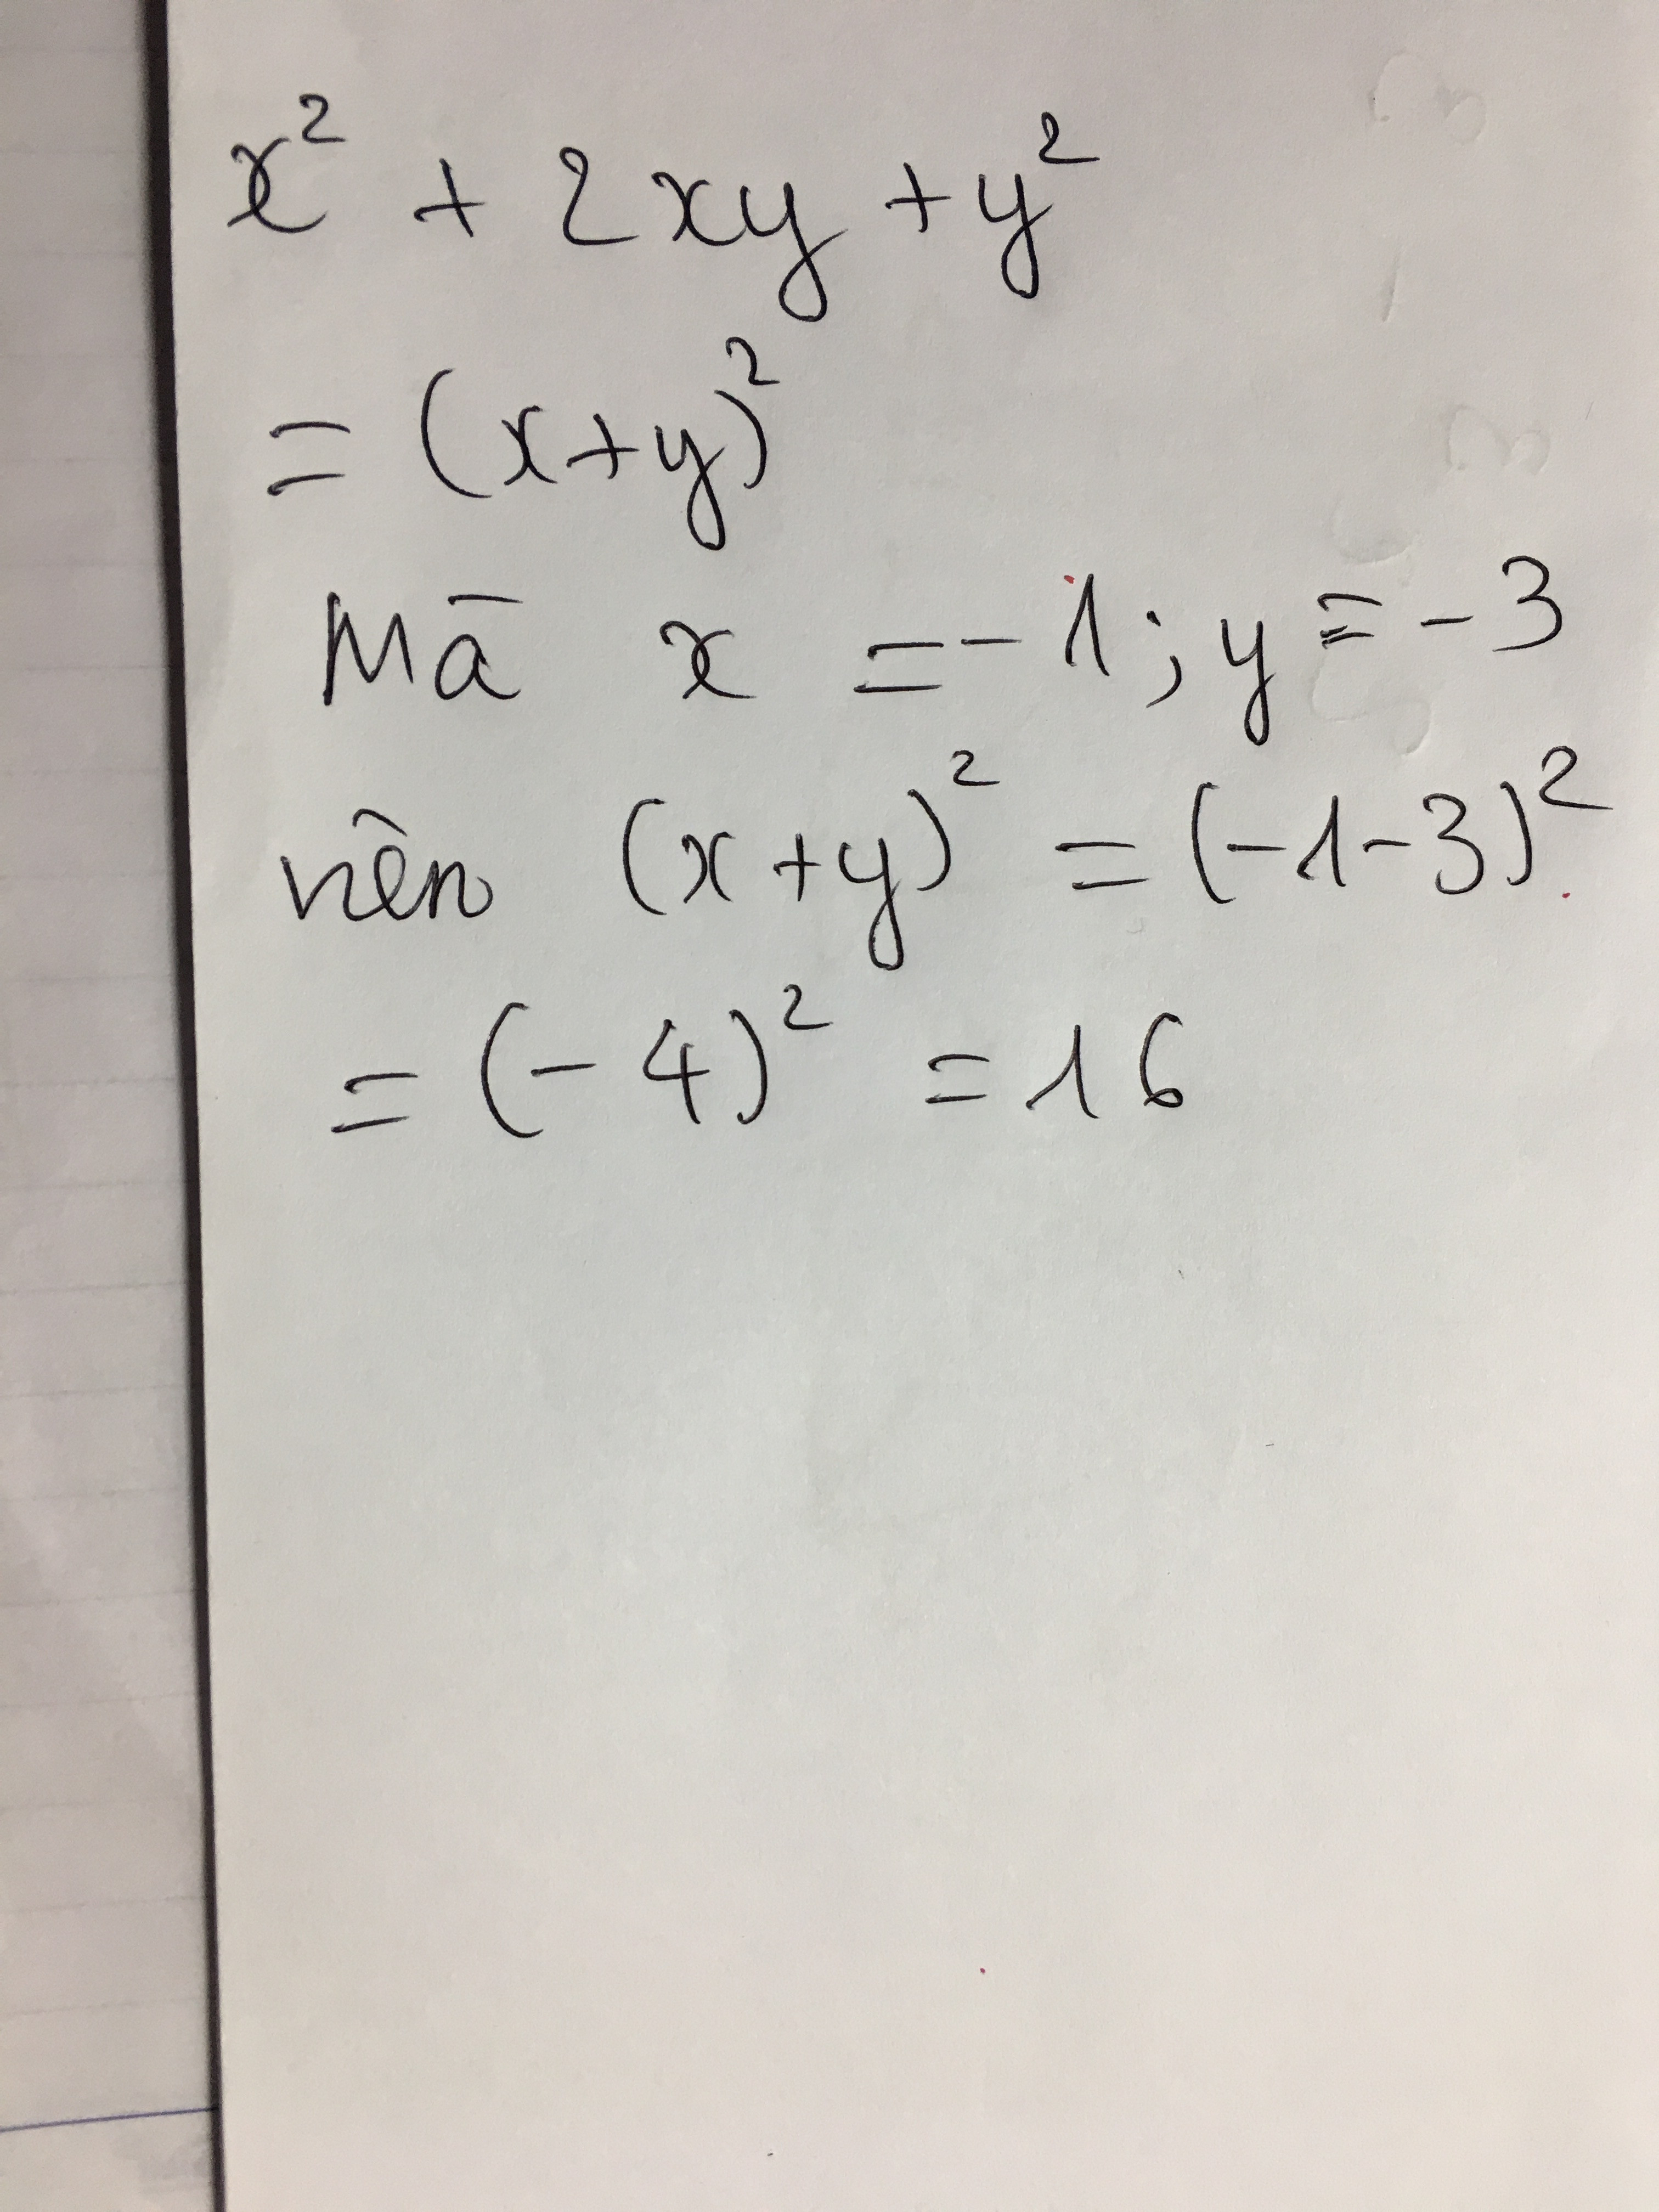 x² + 2xy + y²
= (x+y)²
Mà x = -1 ; y = -3
nên (x+y)² = (-1-3)²
= (-4)² = 16